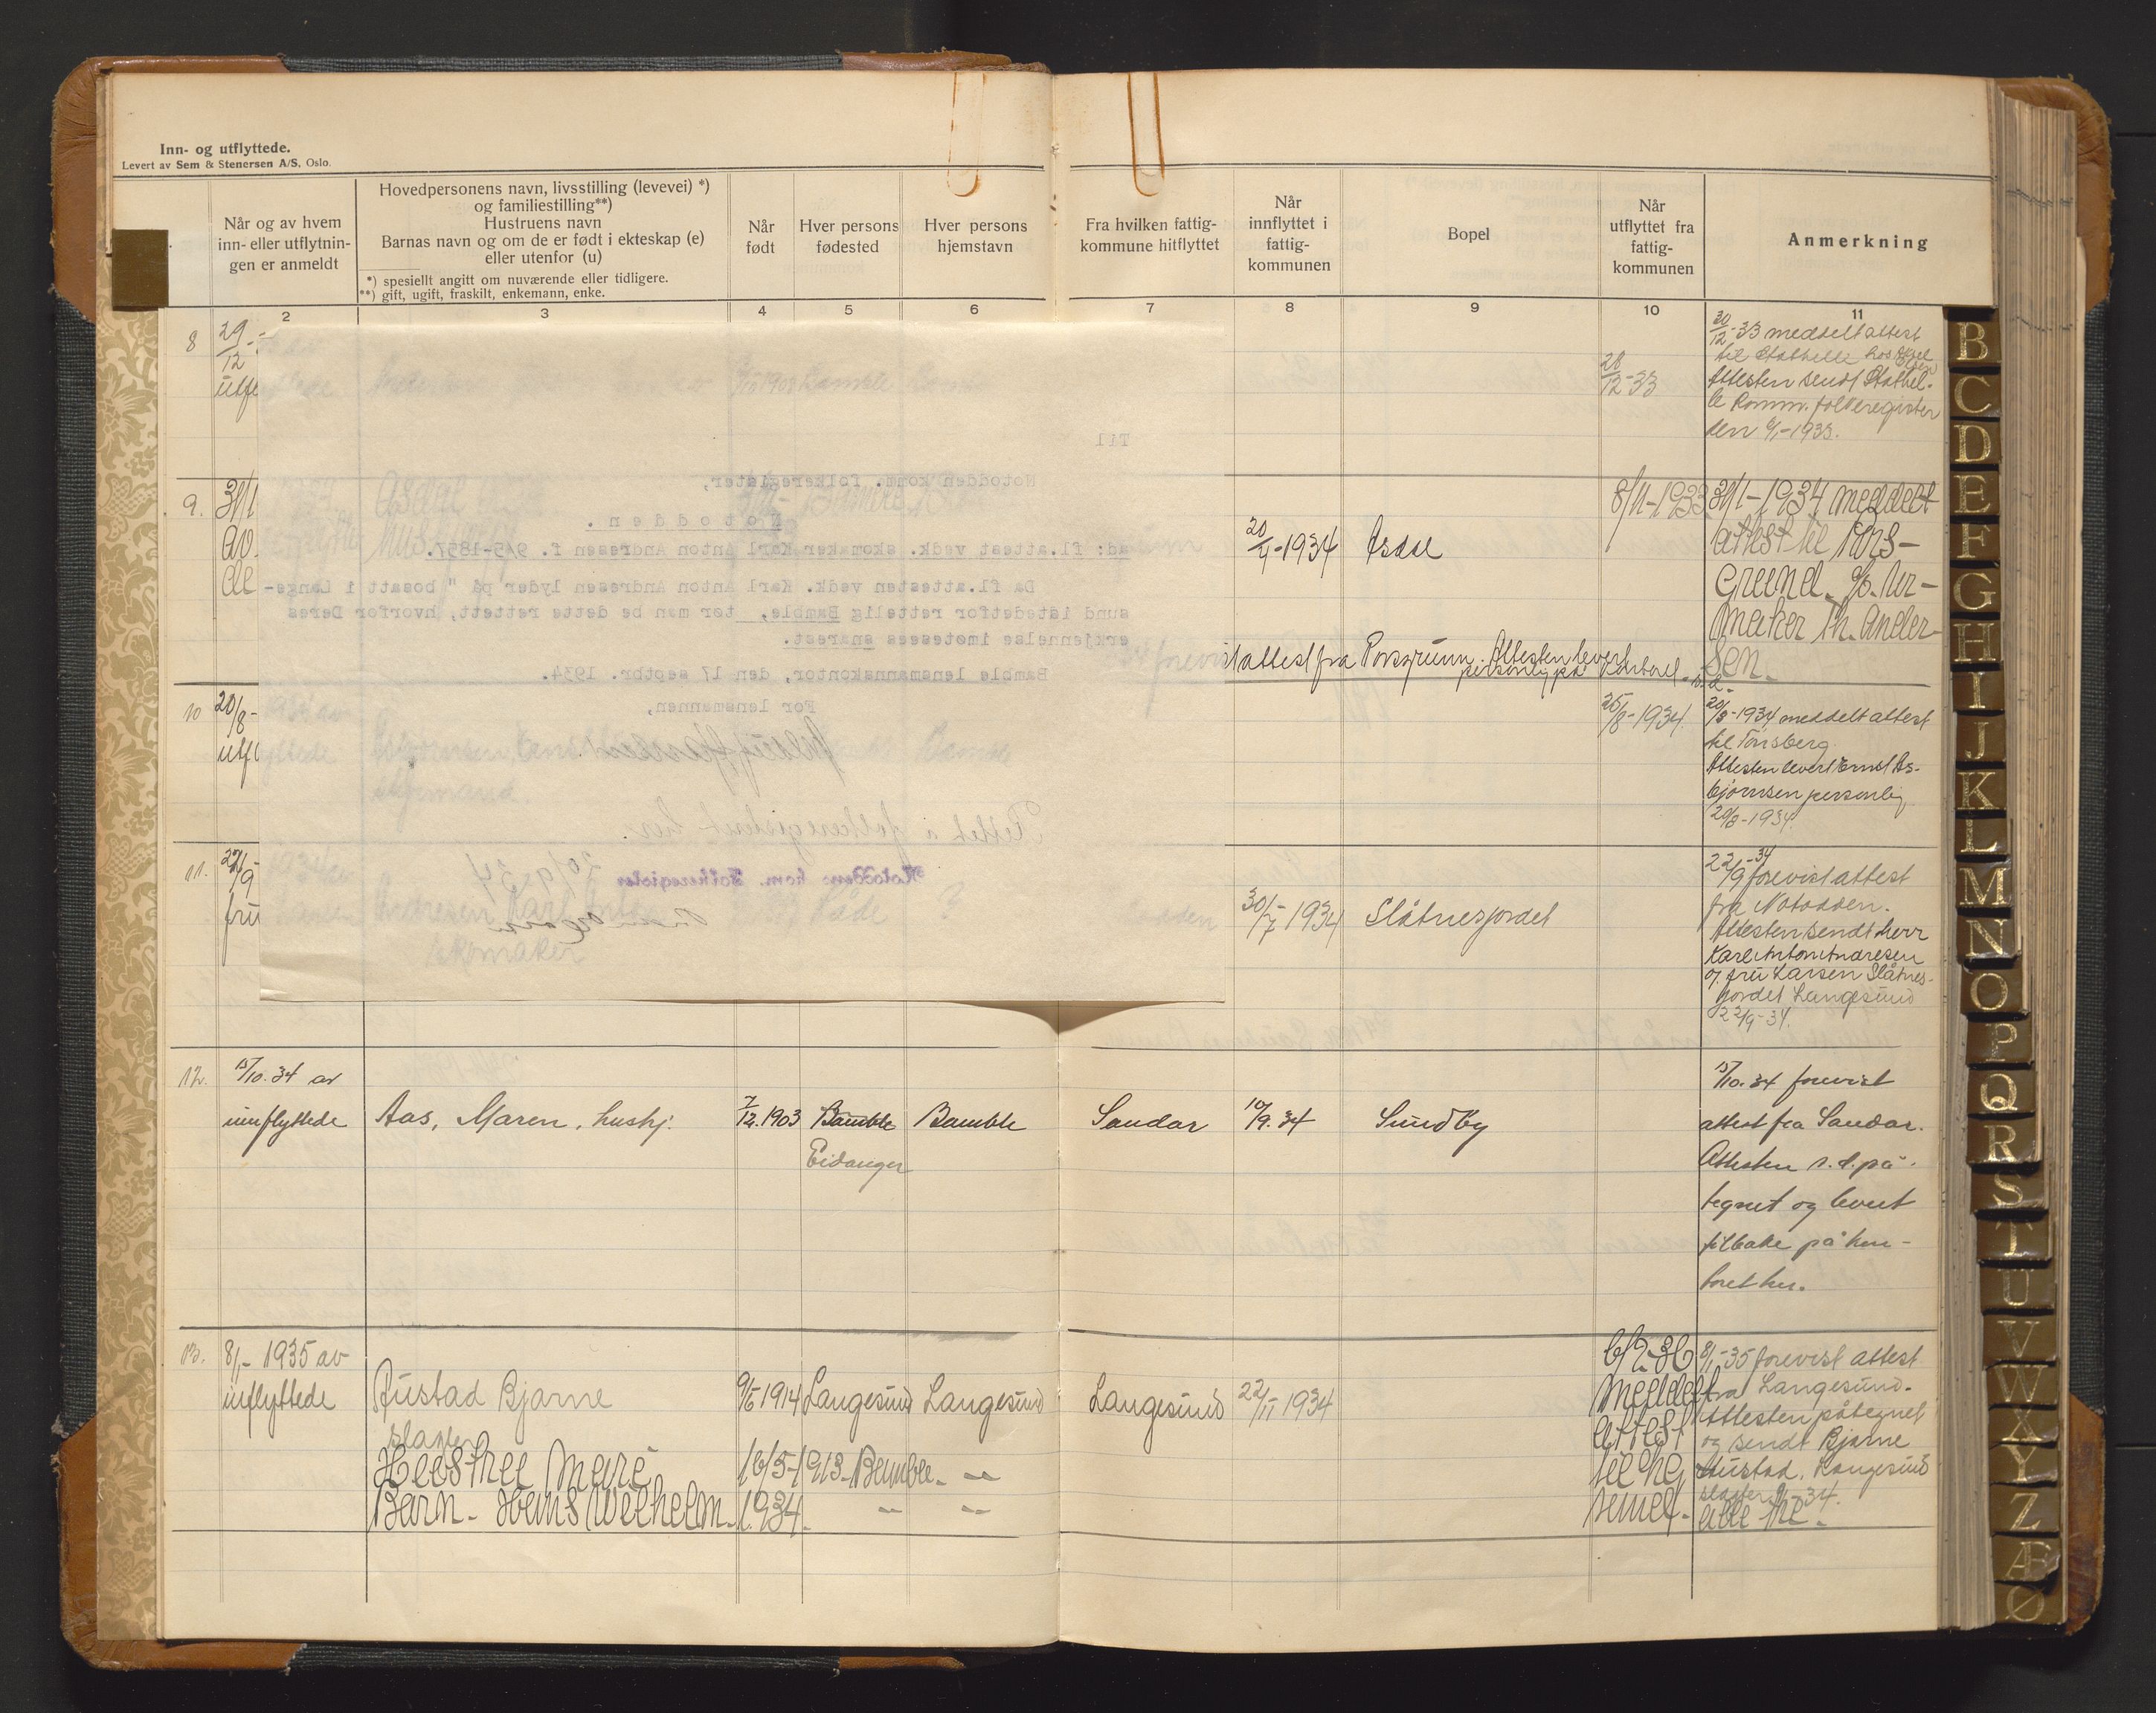 Inn- og utflyttede.
Levert av Sem & Stenersen A/S, Oslo.
Når og av hvem
inn- eller utflytnin-
gen er anmeldt
Hovedpersonens navn, livsstilling (levevei) *)
og familiestilling**)
Hustruens navn
Barnas navn og om de er født i ekteskap (e)
eller utenfor (u)
*) spesiellt angitt om nuværende eller tidligere.
**) gift, ugift, fraskilt, enkemann, enke.
Når
født
Hver persons
fødested
Hver persons
hjemstavn
Fra hvilken fattig-
kommune hitflyttet
Når
innflyttet i
fattig-
kommunen
Bopel
Når
utflyttet fra
fattig-
kommunen
Anmerkning
2 3 4 5 6 7 8 9 10 11
8 29/12
28/12-33
30/12-33 meddelt attest
til Stathelle hos Aksel
Olsen
Attesten sendt Stathel-
le komm. folkeregister
den 6/1-1933.
Til
Notodden komm. folkeregister,
Notodden.
ad: fl.attest vedk. skomaker Karl Anton Andresen f. 9/5-1857.
Da fl.attesten vedk. Karl Anton Andresen lyder på " bosatt i Lange-
sund istedetfor rettelig Bamble, tør man be dette rettett, hvorfor Deres
erkjennelse imøtesees snarest.
Bamble lensmannskontor, den 17 septbr. 1934.
For lensmannen,
Rettet i folkeregisteret her.
Notodden kom. Folkeregister 20/9 34
9. 31/1
av
20/4-1934 Asdal
8/11-1933
31/1-1934 meddelt
attest til Pors-
grund. c/o. Ur-
maker Th. Ander-
sen.
attest fra Porsgrunn. Attesten levert
personlig på kontoret
10 20/8-
25/8-1934.
20/8-1934 meddelt attest
til Tønsberg.
Attesten levert Ernst As-
bjørnsen personlig
20/8-1934.
11. 22/9
fru
Andresen Karl Anton
skomaker
30/7 1934 Slåtnesjordet
22/9-34 forevist attest
fra Notodden.
Attesten sendt herr
Karl Anton Andresen
og fru Larsen Slåtnes-
jordet Langesund
22/9-34.
12. 15/10. 34 av
innflyttede Aas, Maren, hushj. 7/12.1903 Bamble Bamble Sandar 10/9. 34 Sundby
Eidanger
15/10. 34 forevist
attest fra Sandar.
Attesten s.d. på-
tegnet og levert
tilbake på kon-
toret her.
13. 8/1- 1935 av
innflyttede Rustad Bjarne 9/6 1914 Langesund Langesund Langesund 22/11 1934
slagter
Hustru Marie 16/5-1913- Bamble. -"-
Barn- Hans Wilhelm. 1934. -"- -"-
6/2-36
meddelt
attest
8/1-35 forevist attest
fra Langesund.
Attesten påtegnet
og sendt Bjarne
Rustad, Langesund